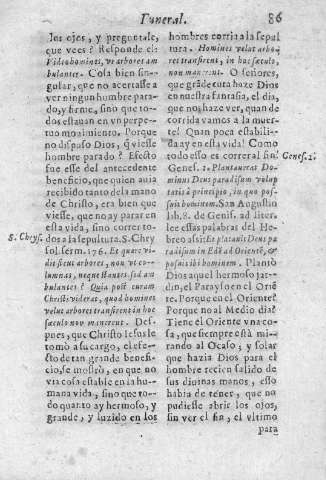 Funeral. 86
los ojos, y preguntale,
que vees? Responde el:
Video homines, vt arbores am
bulantes. Cosa bien sin-
gular, que no acertasse a
ver ningun hombre para
do, y firme, sino que to-
dos estauan en vn perpe-
tuo mouimiento. Porque
no dispuso Dios, q̃ viesse
hombre parado? Efecto
fue esse del antecedente
beneficio, que quien auia
recibido tanto de la mano
de Christo, era bien que
viesse, que no ay parar en
esta vida, sino correr to-
dos a la sepultura. S. Chry
sol. serm. 176. Et quare vi-
dit sicut arbores, non vt co-
lumnas, neque stantes sed am
bulantes? Quia post curam
Christi viderat, quod homines
velut arbores transirent in hoc
sæculo non manerent. Des-
pues, que Christo le salle
tomò a su cargo, el efe-
cto de tan grande benefi-
cio, se mostrò, en que no
via cosa estable en la hu-
mana vida, sino que to-
do quanto ay hermoso, y
grande, y luzido en los
S. Chrys.
hombres corria a la sepul
tura. Homines velut arbo
res transirent, in hoc sæculo,
non manerent. O señores,
que grãde cura haze Dios
en nuestra fantasia, el dia,
que nos haze ver, quan de
corrida vamos a la muer-
te! Quan poca estabili-
da ay en esta vida! Como
todo esso es correr al fin!
Genes. 2. Plantauerat Do-
minus Deus paradisum volup
tatis à principio, in quo pos-
suit hominem. San Augustin
lib. 8. de Genis. ad liter.
lee essas palabras del He-
breo assi: Et plātauit Deus pa
radisum in Edē ad Orientē, &
possuit ibi hominem. Plantò
Dios aquel hermoso jar-
din, el Parayso en el Oriē
te. Porque en el Oriente?
Porque no al Medio dia?
Tiene el Oriente vn reco-
ra, que siempre està mi-
rando al Ocaso; y solar
que hazia Dios para el
hombre recien salido de
sus diuinas manos, esso
hauia de tener, que no
pudiesse abrir los ojos,
sin ver el fin, el vltimo
Genes. 2.
para